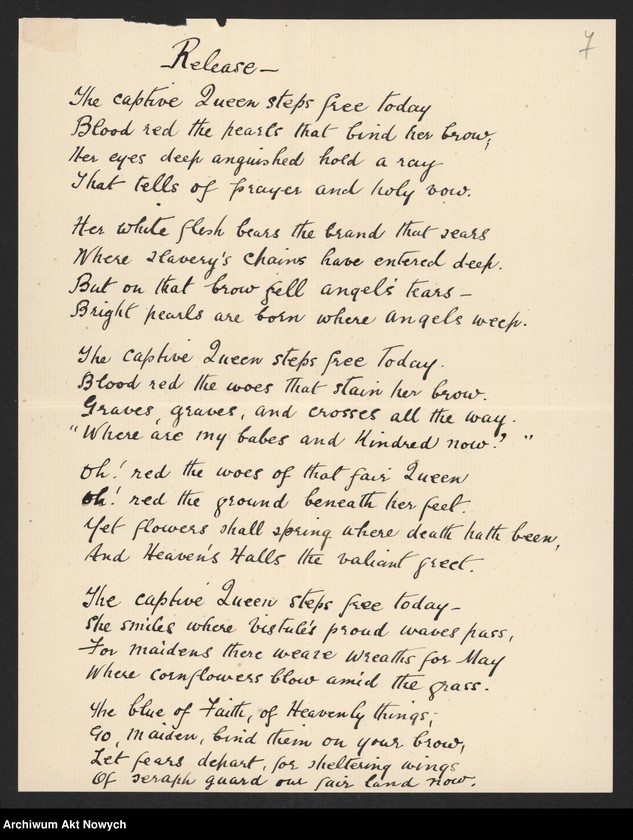 7
Release –
The captive Queen steps free today
Blood red the pearls that bind her brow;
Her eyes deep anguished hold a ray
That tells of prayer and holy vow.
Her white flesh bears the brand that sears
Where slavery's chains have entered deep.
But on that brow fell angel's tears –
Bright pearls are born where angels weep.
The captive Queen steps free today.
Blood red the woes that stain her brow.
Graves, graves, and crosses all the way.
"Where are my babes and kindred now?"
Oh! red the woes of that fair Queen
Oh! red the ground beneath her feet.
Yet flowers shall spring where death hath been,
And Heaven's Halls the valiant greet.
The captive Queen steps free today –
She smiles where Vistule's proud waves pass,
For maidens there weave wreaths for May
Where cornflowers blow amid the grass.
The blue of Faith, of Heavenly things,
Go, maiden, bind them on your brow,
Let fears depart, for sheltering wings
Of seraph guard our fair land now.
Archiwum Akt Nowych